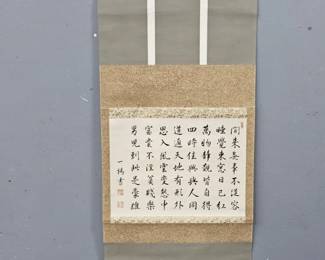 間来無事不從容
睡覺東窓日已紅
萬物靜觀皆自得
四時佳興與人同
道通天地有形外
思入風雲變態中
富貴不淫貧賤樂
男児到此是豪雄
一 書